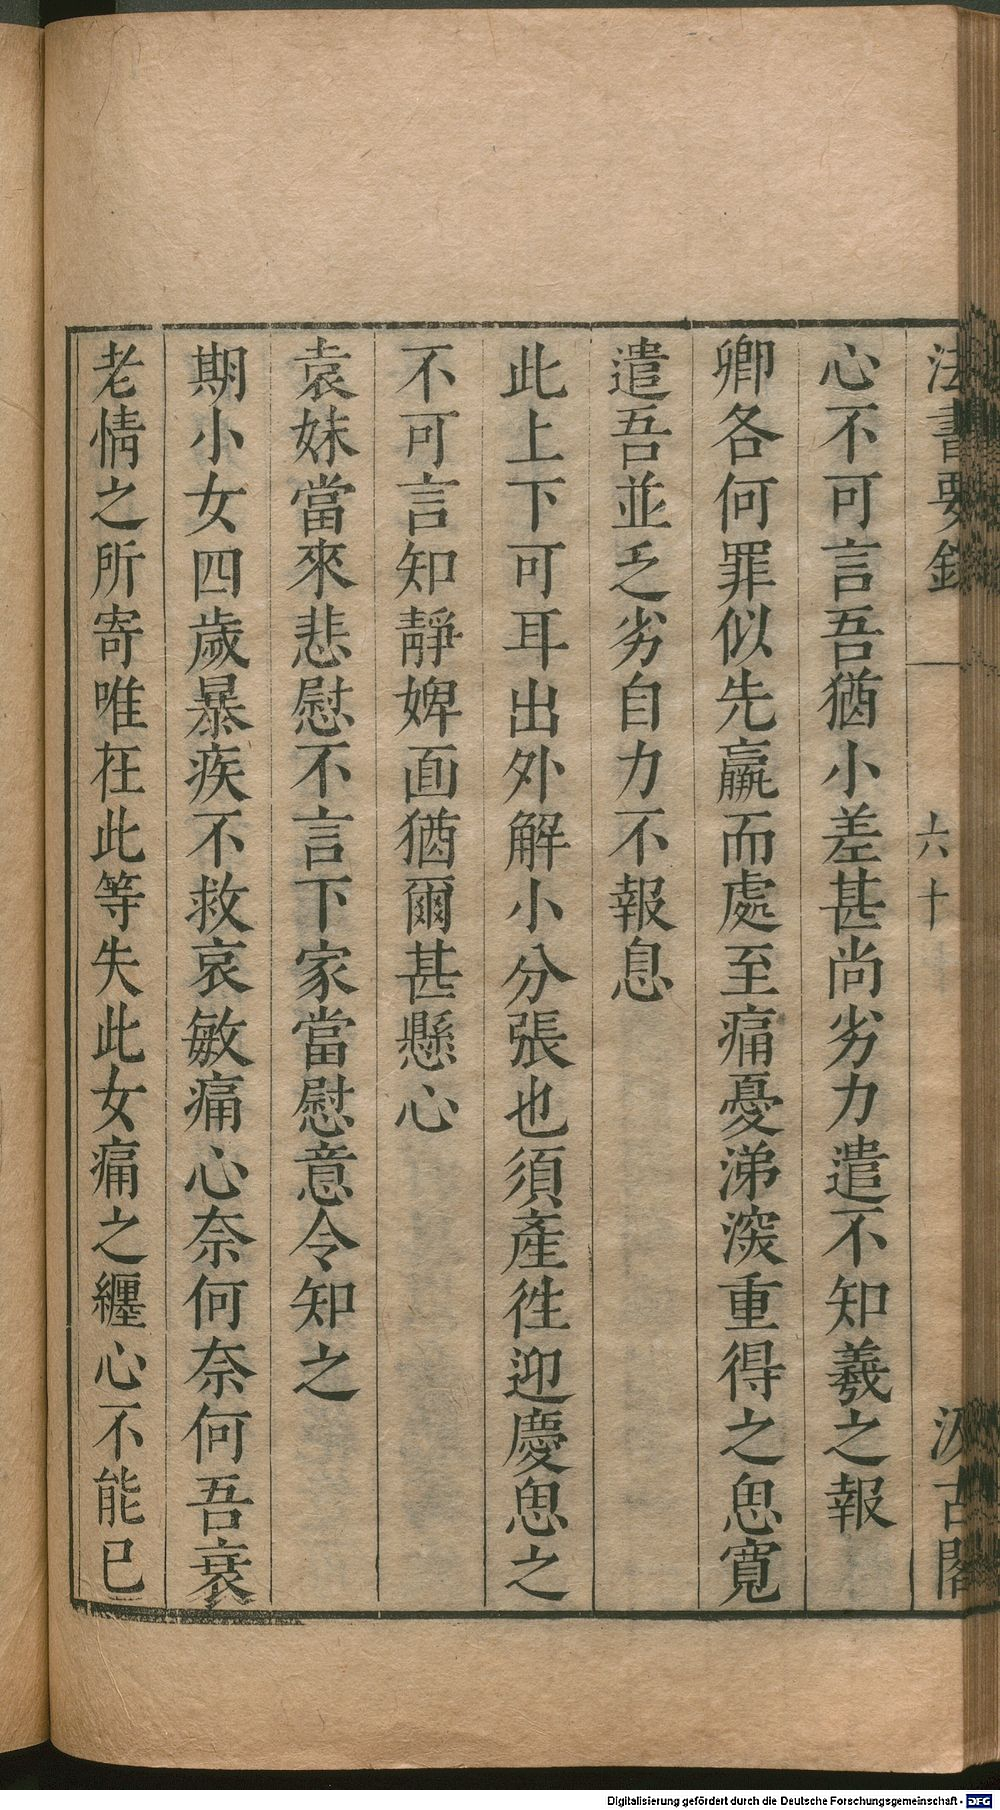 法書要錄 六十 汲古閣
心不可言吾猶小差甚尚劣力遣不知羲之報
卿各何罪似先羸而處至痛憂涕深重得之思寬
遣吾並乏劣自力不報息
此上下可耳出外解小分張也須產徃迎慶思之
不可言知靜婢面猶爾甚懸心
袁妹當來悲慰不言下家當慰意令知之
期小女四歲暴疾不救哀愍痛心奈何奈何吾衰
老情之所寄唯在此等失此女痛之纏心不能已
Digitalisierung gefördert durch die Deutsche Forschungsgemeinschaft - DFG